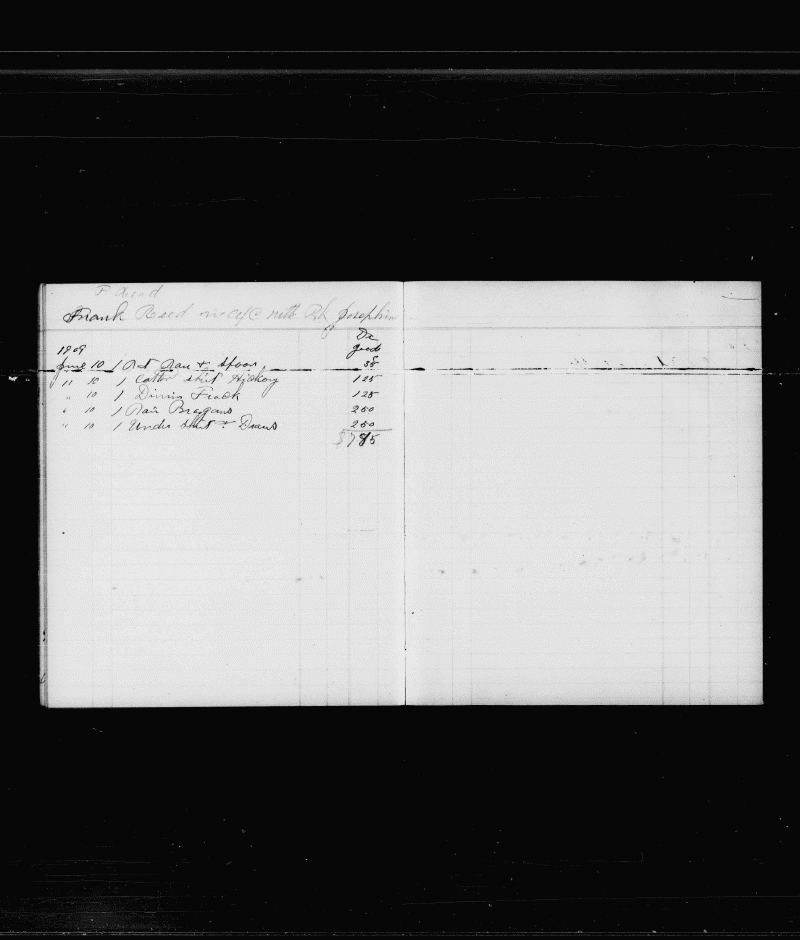 F Reed
Frank Reed in a/c with Josephin
Dr
1909 goods
June 10 1 Pan & Spoon 35
" 10 1 Cotton shirt Hickory 125
" 10 1 Frock 125
" 10 1 Pair Brogans 250
" 10 1 Under shirt & Draws 250
$785